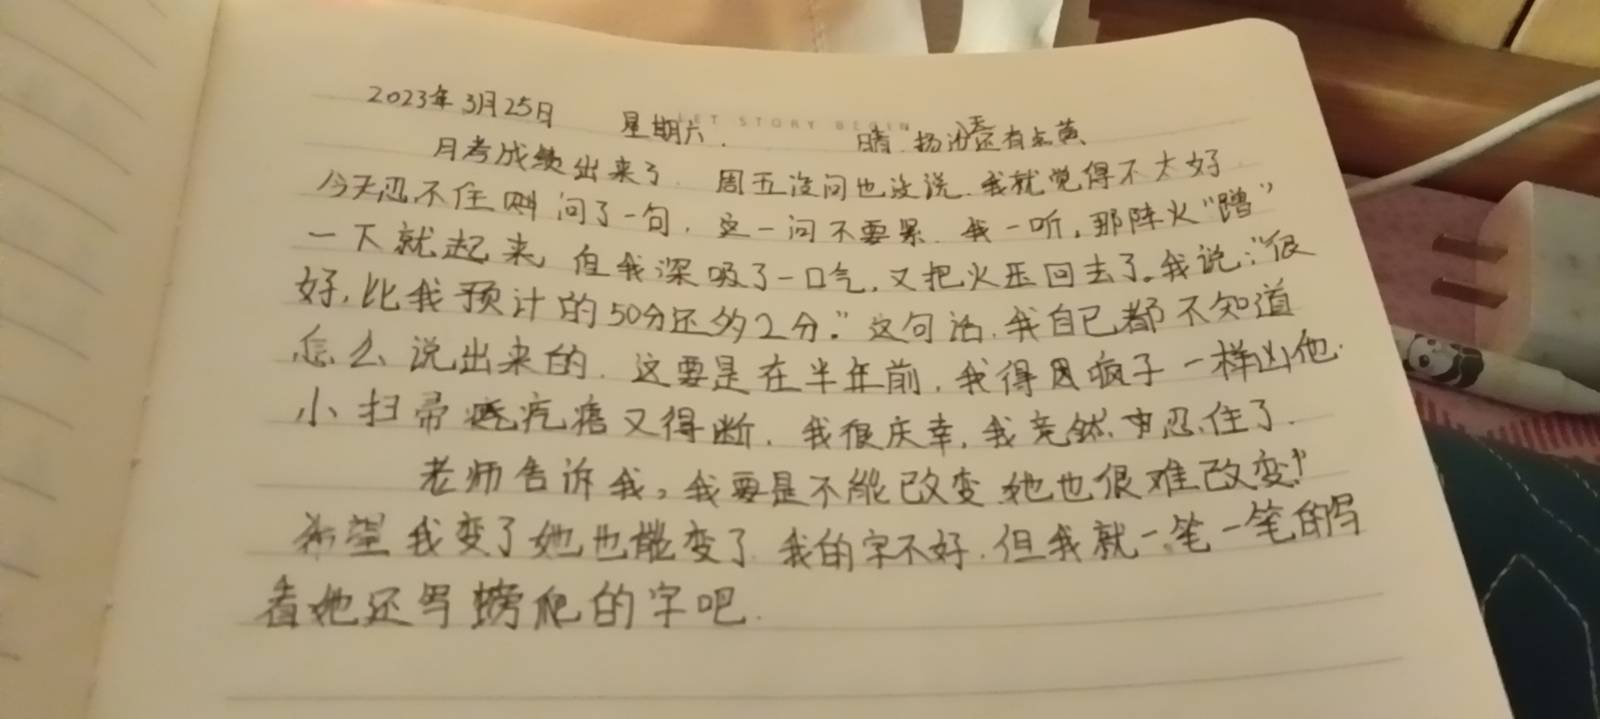 LET STORY BEGIN
2023年3月25日 星期六. 晴.扬沙天还有点黄
月考成绩出来了. 周五没问也没说.我就觉得不太好.
今天忍不住 问了一句.这一问不要累.我一听,那阵火“蹭”
一下就起来,但我深吸了一口气,又把火压回去了。我说:“很
好,比我预计的50分还多2分.”这句话.我自己都不知道
怎么说出来的.这要是在半年前,我得 疯子一样凶他.
小扫帚疙瘩又得断.我很庆幸,我竟然 忍住了.
老师告诉我,我要是不能改变.她也很难改变!
希望我变了她也能变了.我的字不好.但我就一笔一笔的写
看她还写螃爬的字吧.